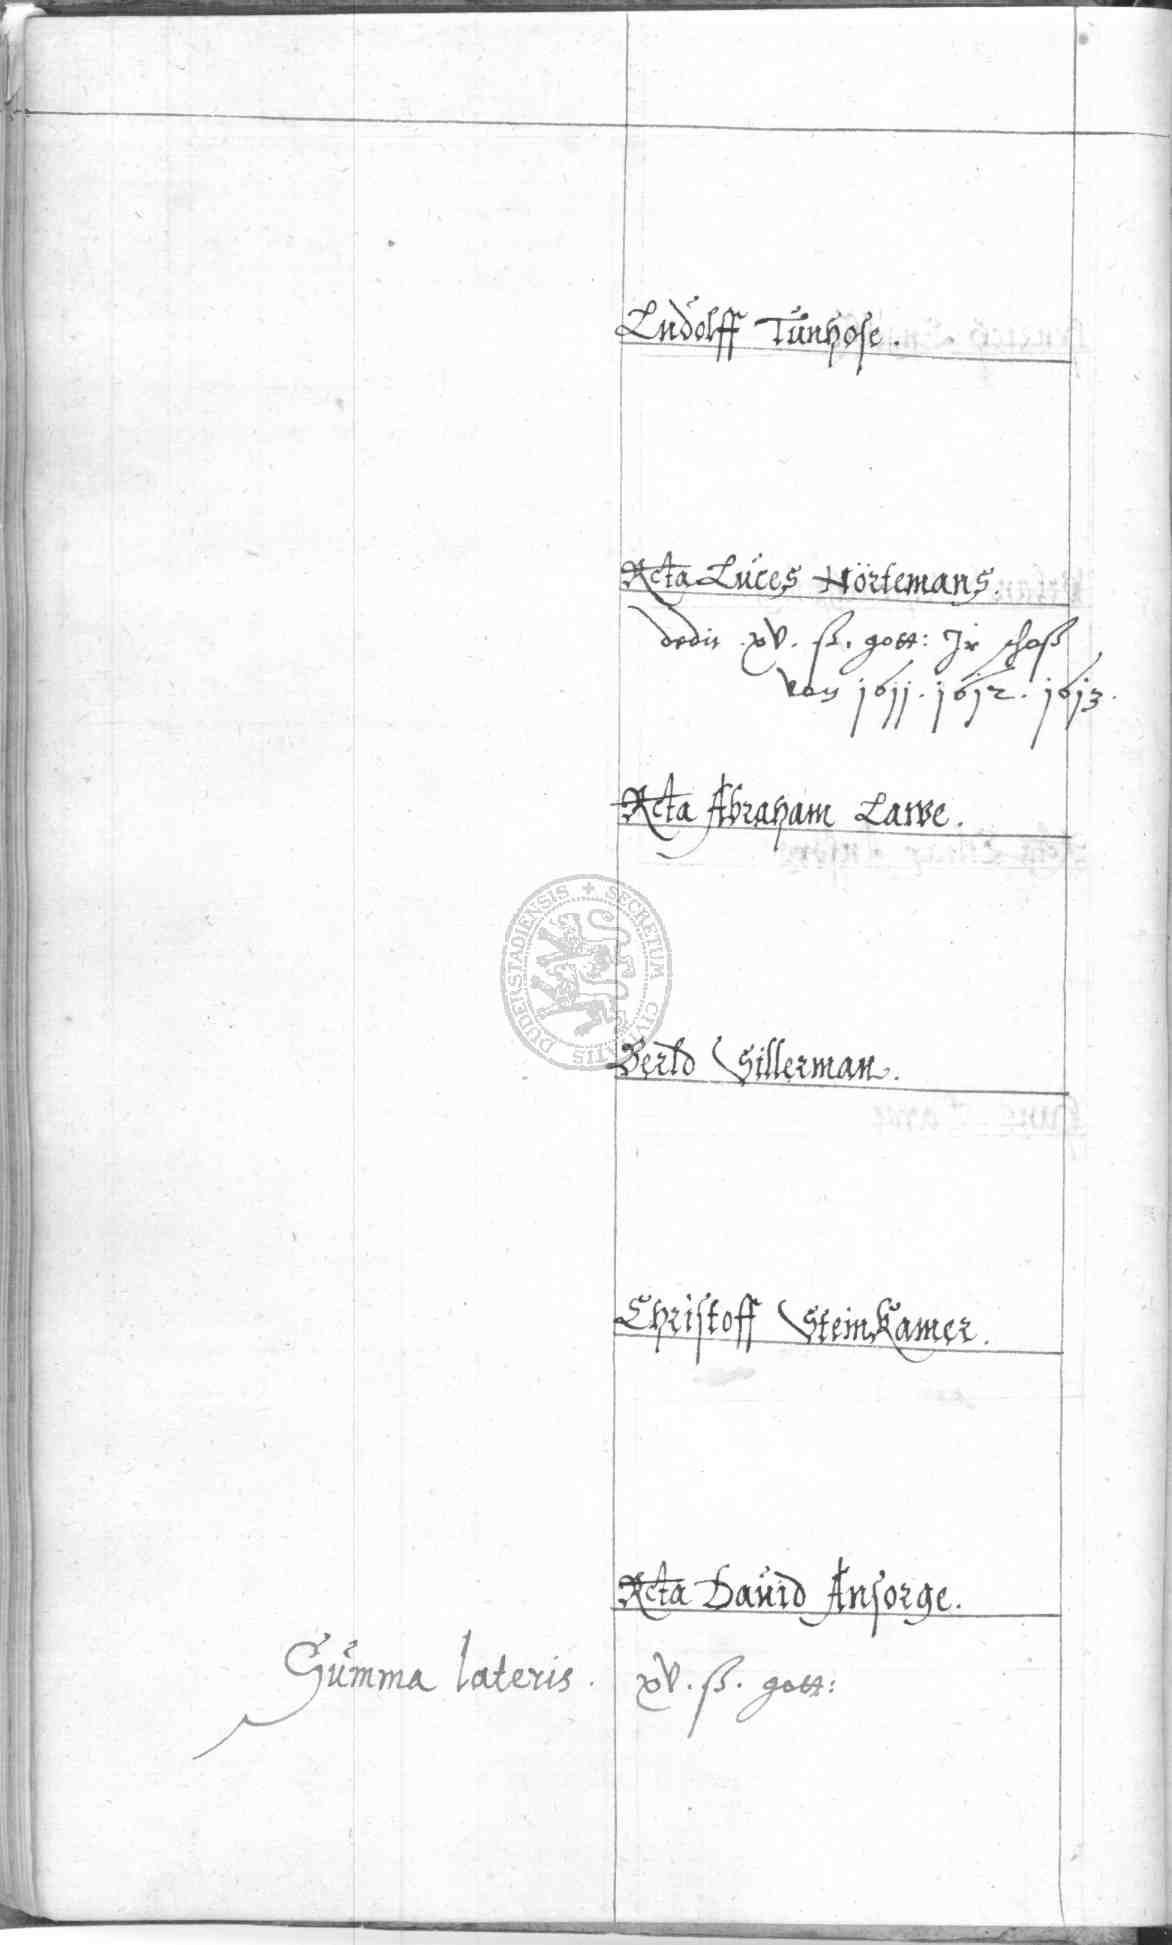 Ludolff Tunhose.
Acta Luces Hörtemans.
dedit xv. ß. gott: Jr schoß
von 1611. 1612. 1613.
Acta Abraham Lawe.
SECRETUM CIVITATIS DUDERSTADIENSIS
Bertld Sillerman.
Christoff Steinkamer.
Acta David Ansorge.
Summa lateris. xv. ß. gott: